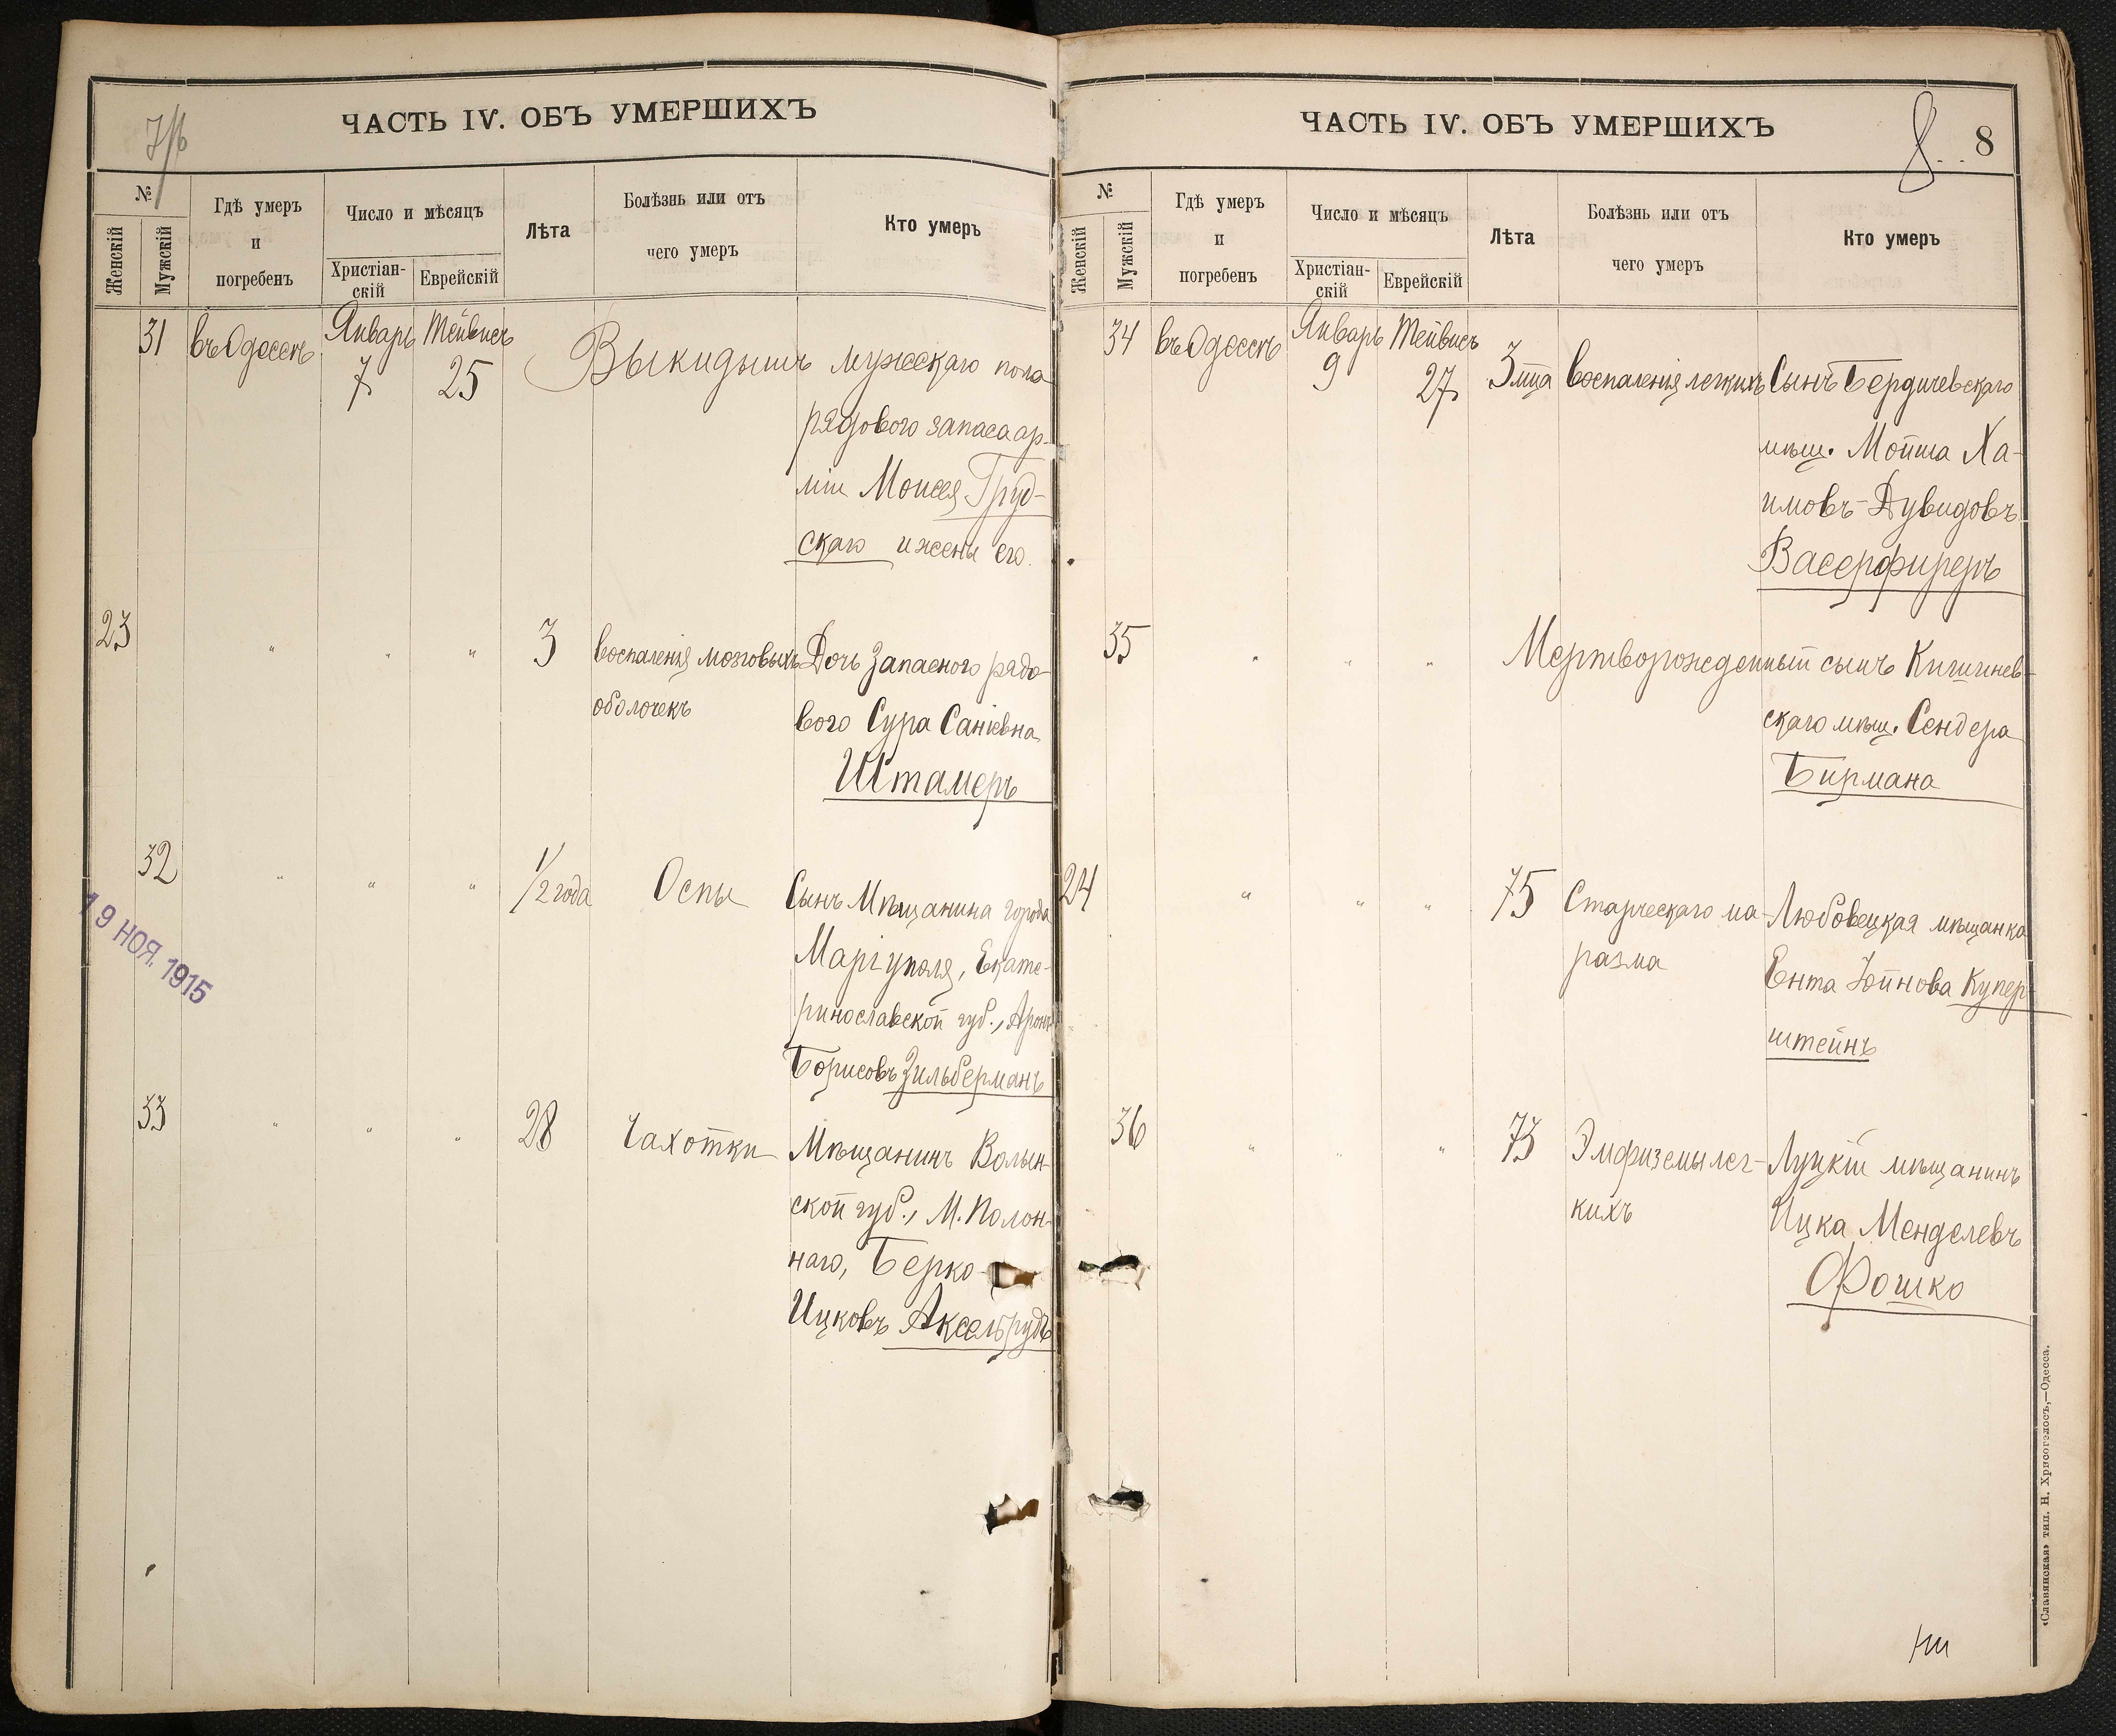 ЧАСТЬ IV. ОБЪ УМЕРШИХЪ
№
Женскій
Мужскій
Гдѣ умеръ
и
погребенъ
Число и мѣсяцъ
Христіан-
скій
Еврейскій
Лѣта
Болѣзнь или отъ
чего умеръ
Кто умеръ
31 въ Одессѣ Январь 7 Тейвисъ 25 Выкидышъ мужескаго пола
рядового запаса ар-
міи Моисея Груд-
скаго и жены его.
23 " " " 3 воспаленія мозговыхъ Дочь запасного рядо-
оболочекъ вого Сура Саніевна
Штамеръ
32 " " " 1/2 года Оспы Сынъ Мѣщанина города
Маріуполя, Екате-
ринославской губ., Аронъ
Борисовъ Зильберманъ
19 НОЯ. 1915
33 " " " 28 Чахотки Мѣщанинъ Волын-
ской губ., М. Полон-
наго, Берко
Ицковъ Аксельрудъ
ЧАСТЬ IV. ОБЪ УМЕРШИХЪ
8 8
№
Женскій
Мужскій
Гдѣ умеръ
и
погребенъ
Число и мѣсяцъ
Христіан-
скій
Еврейскій
Лѣта
Болѣзнь или отъ
чего умеръ
Кто умеръ
34 въ Одессѣ Январь 9 Тейвисъ 27 3 мца воспаленія легкихъ Сынъ Бердичевскаго
мѣщ. Мойша Ха-
имовъ-Дувидовъ
Васерфиреръ
35 " " " Мертворожденный сынъ Кишинев-
скаго мѣщ. Сендера
Бирмана
24 " " " 75 Старческаго ма- Любовецкая мѣщанка
разма Ента Іойнова Купер-
штейнъ
36 " " " 73 Эмфиземы лег- Луцкій мѣщанинъ
кихъ Ицка Менделевъ
Фошко
«Славянская» тип. Н. Хрисогелосъ,—Одесса.